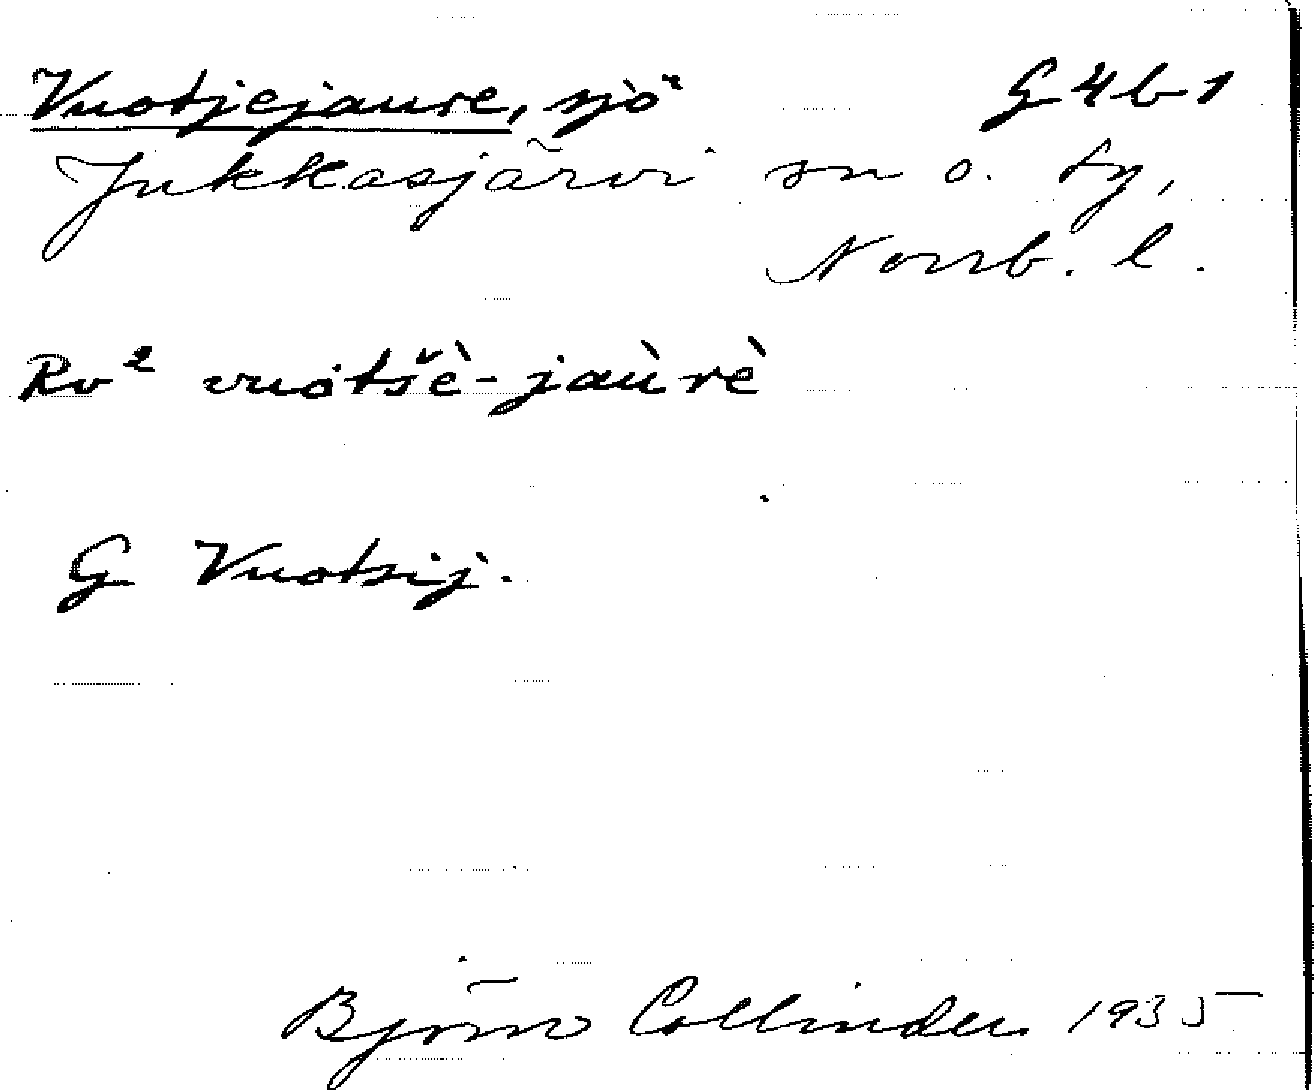 Vuotjejaure, sjö G4b1
Jukkasjärvi sn o. ty,
Norrb. l.
Rv² vuotšè-jaùrè
G Vuotsij.
Björn Collinder 1935